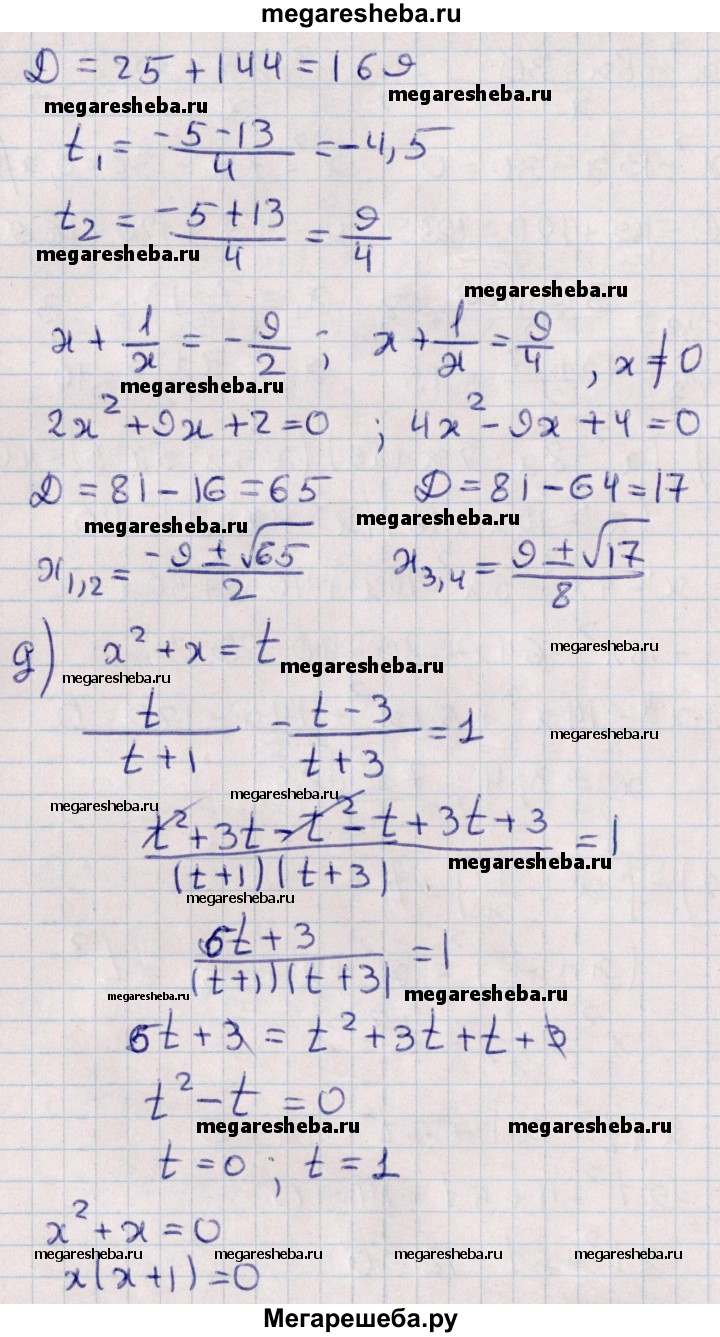 megaresheba.ru
D = 25 + 144 = 169
megaresheba.ru megaresheba.ru
t₁ = (-5-13)/4 = -4,5
t₂ = (-5+13)/4 = 9/4
megaresheba.ru
megaresheba.ru
x + 1/x = -9/2 ; x + 1/x = 9/4 , x ≠ 0
megaresheba.ru
2x² + 9x + 2 = 0 ; 4x² - 9x + 4 = 0
D = 81 - 16 = 65 D = 81 - 64 = 17
megaresheba.ru megaresheba.ru
x₁,₂ = (-9 ± √65)/2 x₃,₄ = (9 ± √17)/8
g) x² + x = t megaresheba.ru
megaresheba.ru megaresheba.ru
t/(t+1) - (t-3)/(t+3) = 1
megaresheba.ru
megaresheba.ru megaresheba.ru
(t² + 3t - t² - t + 3t + 3)/((t+1)(t+3)) = 1
megaresheba.ru
megaresheba.ru
(5t + 3)/((t+1)(t+3)) = 1
megaresheba.ru megaresheba.ru
5t + 3 = t² + 3t + t + 3
t² - t = 0
megaresheba.ru megaresheba.ru
t = 0 ; t = 1
x² + x = 0
megaresheba.ru megaresheba.ru megaresheba.ru megaresheba.ru
x(x+1) = 0
Мегарешеба.ру